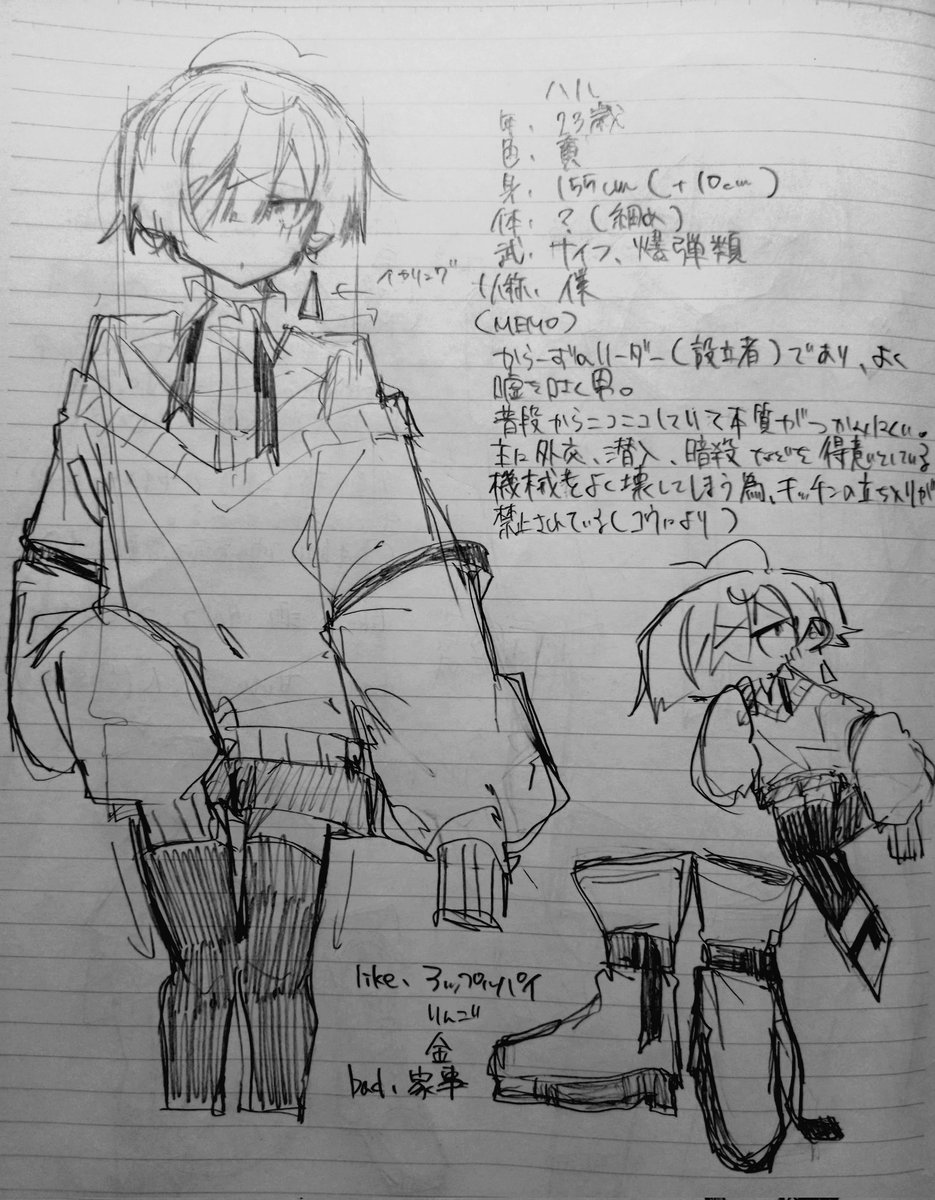 ハル
年、23歳
色、黄
身、155cm(+10cm)
体、?(細め)
武、サイフ、爆弾類
1人称、僕
イヤリング
(MEMO)
からーずのリーダー(設立者)であり、よく
嘘を吐く男。
普段からニコニコしていて本質がつかみにくい。
主に外交、潜入、暗殺などを得意としている
機械をよく壊してしまう為、キッチンの立ち入りが
禁止されている(コウにより)
like、アップルパイ
りんご
金
bad、家事